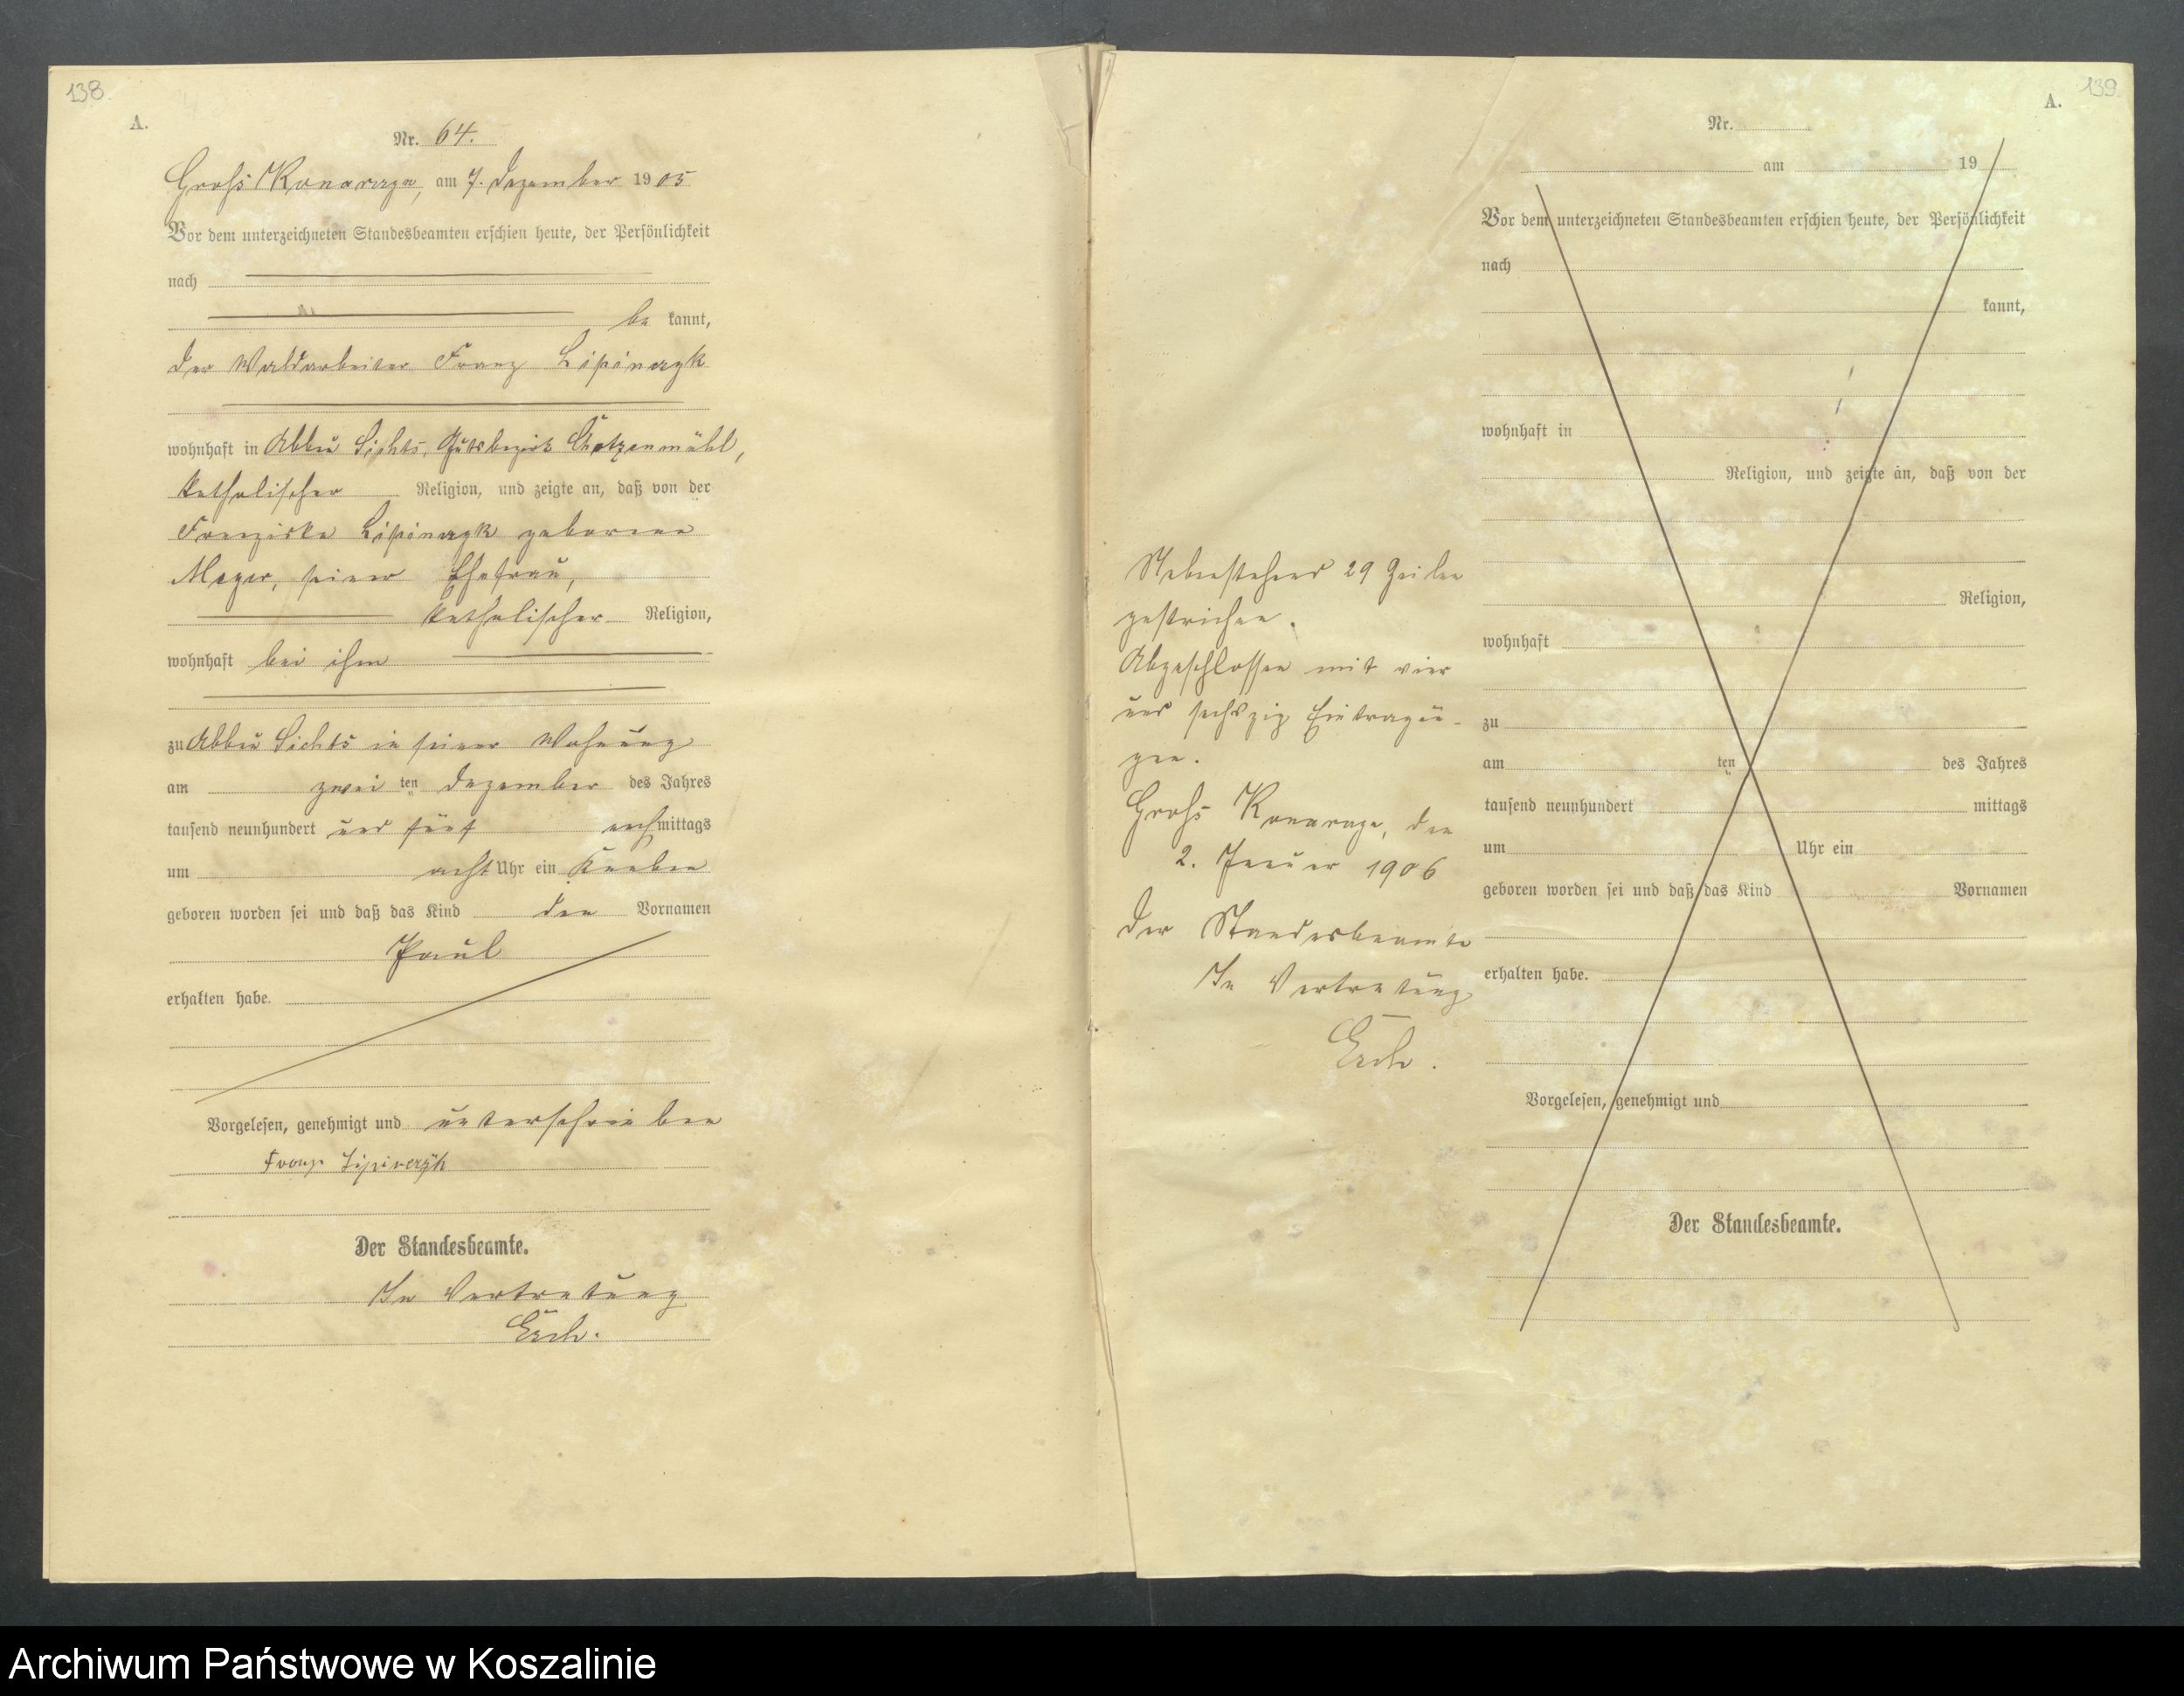 138
A.
Nr. 64.
Groß Konarzyn, am 7. Dezember 1905
Vor dem unterzeichneten Standesbeamten erschien heute, der Persönlichkeit
nach
be kannt,
der Waldarbeiter Franz Lipinczyk
wohnhaft in Abbau Lichts, Gutsbezirk
katholischer Religion, und zeigte an, daß von der
Franziska Lipinczyk geborene
seiner Ehefrau,
katholischer Religion,
wohnhaft bei ihm
zu Abbau Lichts in seiner Wohnung
am zwei ten Dezember des Jahres
tausend neunhundert und fünf nachmittags
um acht Uhr ein Knabe
geboren worden sei und daß das Kind den Vornamen
Paul
erhalten habe.
Vorgelesen, genehmigt und unterschrieben
Franz Lipinczyk
Der Standesbeamte.
In Vertretung
139
A.
Nr.
am 19
Vor dem unterzeichneten Standesbeamten erschien heute, der Persönlichkeit
nach
kannt,
wohnhaft in
Religion, und zeigte an, daß von der
Religion,
wohnhaft
zu
am ten des Jahres
tausend neunhundert mittags
um Uhr ein
geboren worden sei und daß das Kind Vornamen
erhalten habe.
Vorgelesen, genehmigt und
Der Standesbeamte.
Nebenstehend 29 Zeilen
gestrichen.
Abgeschlossen mit vier
und sechszig Eintragun-
gen.
Groß Konarzyn, den
2. Januar 1906
Der Standesbeamte
In Vertretung
Archiwum Państwowe w Koszalinie